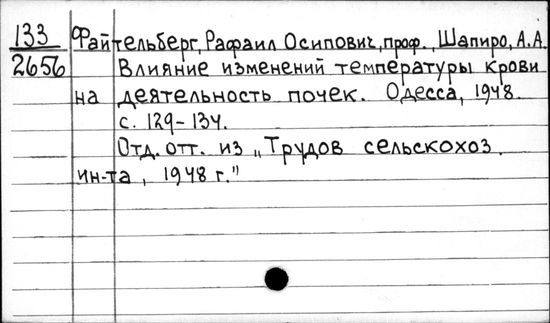 133 Файтельберг, Рафаил Осипович, проф., Шапиро, А.А.
2656 Влияние изменений температуры крови
на деятельность почек. Одесса, 1948.
с. 129-134.
Отд. отт. из „Трудов сельскохоз.
ин-та, 1948 г."